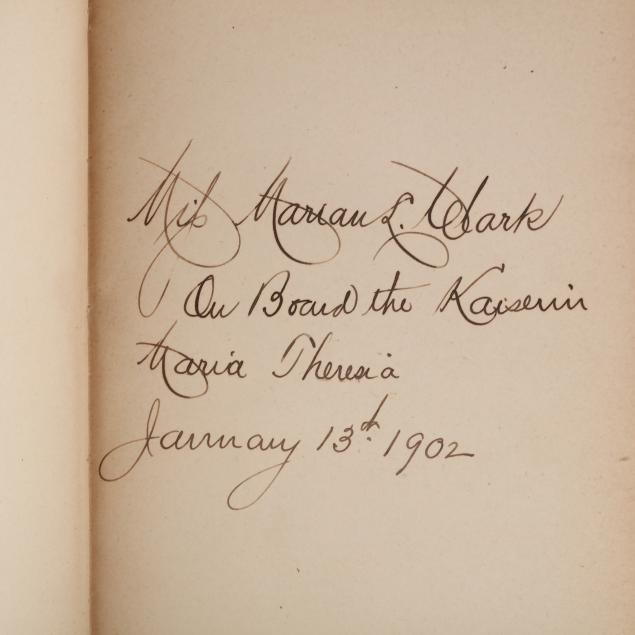 Miss Marian L. Clark
On Board the Kaiserin
Maria Theresia
January 13th. 1902